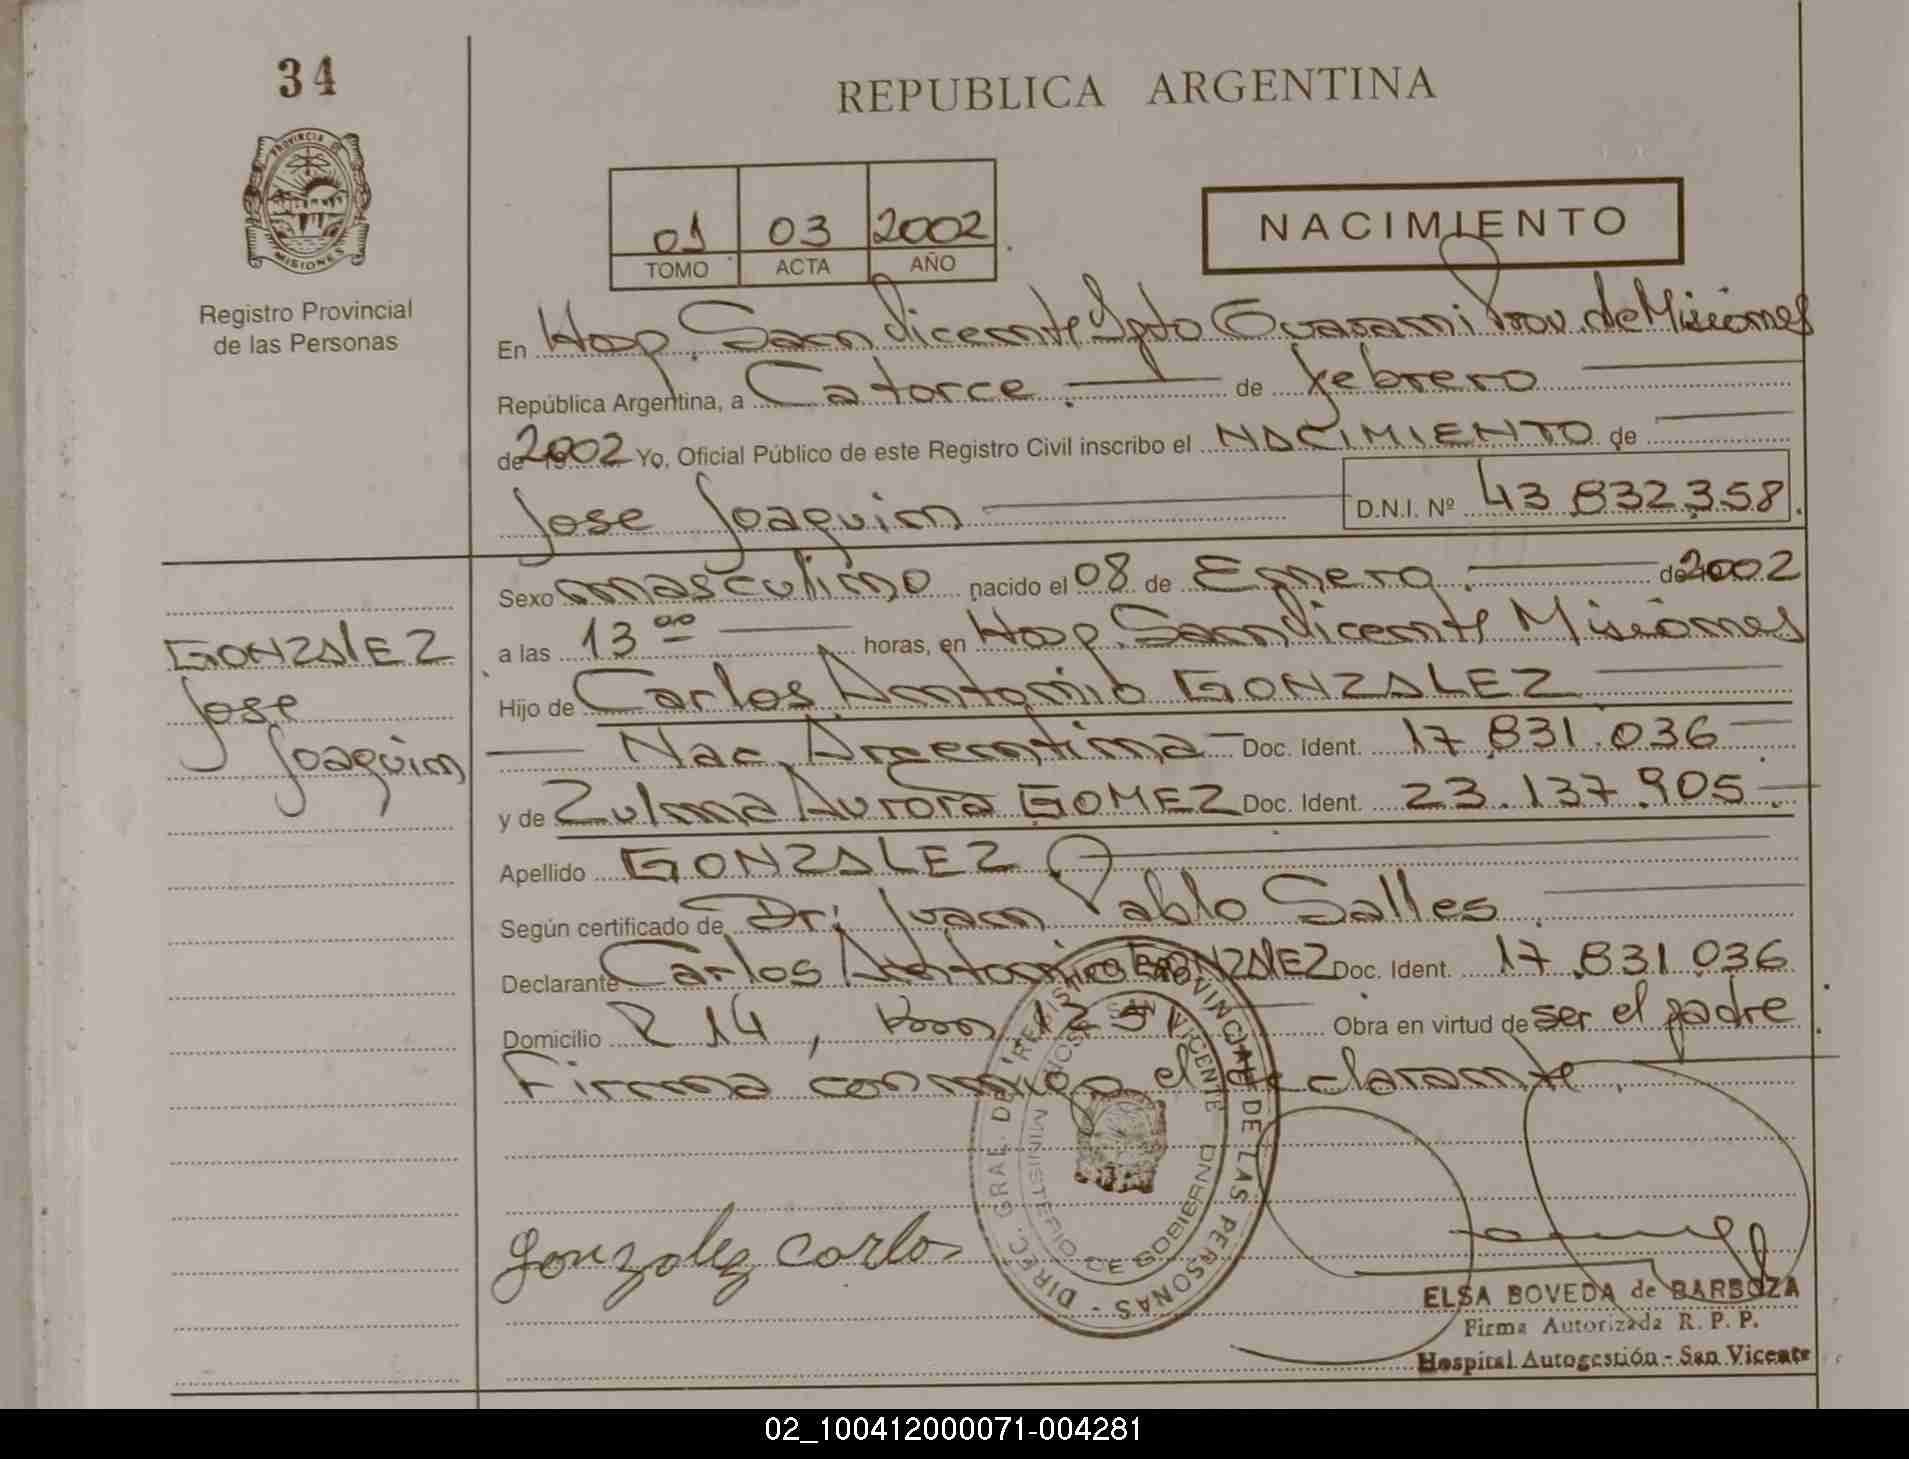 34
REPUBLICA ARGENTINA
PROVINCIA DE
MISIONES
Registro Provincial
de las Personas
01 03 2002
TOMO ACTA AÑO
NACIMIENTO
En Hosp. San Vicente Dpto Guarani Prov. de Misiones
República Argentina, a Catorce. de febrero
de 2002 Yo, Oficial Público de este Registro Civil inscribo el NACIMIENTO de
Jose Joaquin D.N.I. Nº 43.832.358.
Sexo masculino nacido el 08 de Enero. de 2002
GONZALEZ
Jose
Joaquin
a las 13 00 horas, en Hosp. San Vicente Misiones
Hijo de Carlos Antonio GONZALEZ
Nac. Argentina Doc. Ident. 17.831.036
y de Zulma Aurora GOMEZ Doc. Ident. 23.137.905
Apellido GONZALEZ
Según certificado de Dr: Juan Pablo Salles.
Declarante Carlos Antonio GONZALEZ Doc. Ident. 17.831.036
Domicilio R 14, Km Obra en virtud de ser el padre
Firma conmigo el declarante.
DIREC. GRAL. DEL REGISTRO PROVINCIAL DE LAS PERSONAS -
MINISTERIO DE GOBIERNO
SAN VICENTE
gonzalez carlos
ELSA BOVEDA de BARBOZA
Firma Autorizada R. P. P.
Hospital Autogestión - San Vicente
02_100412000071-004281